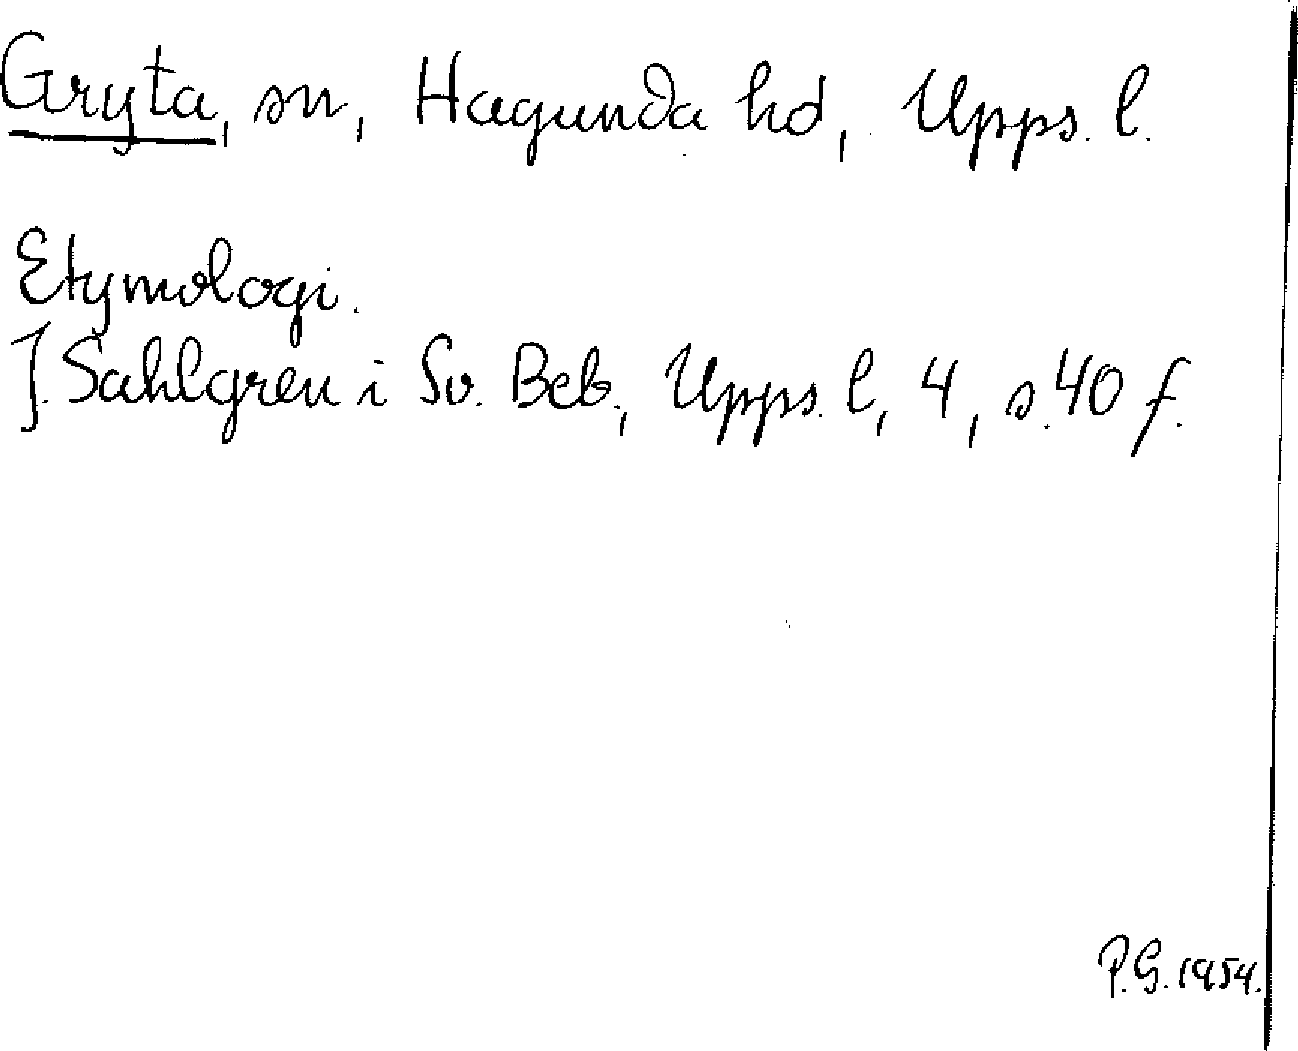 Gryta, sn, Hagunda hd, Upps. l.
Etymologi.
J. Sahlgren i Sv. Beb., Upps. l, 4, s. 40 f.
P.G. 1954.